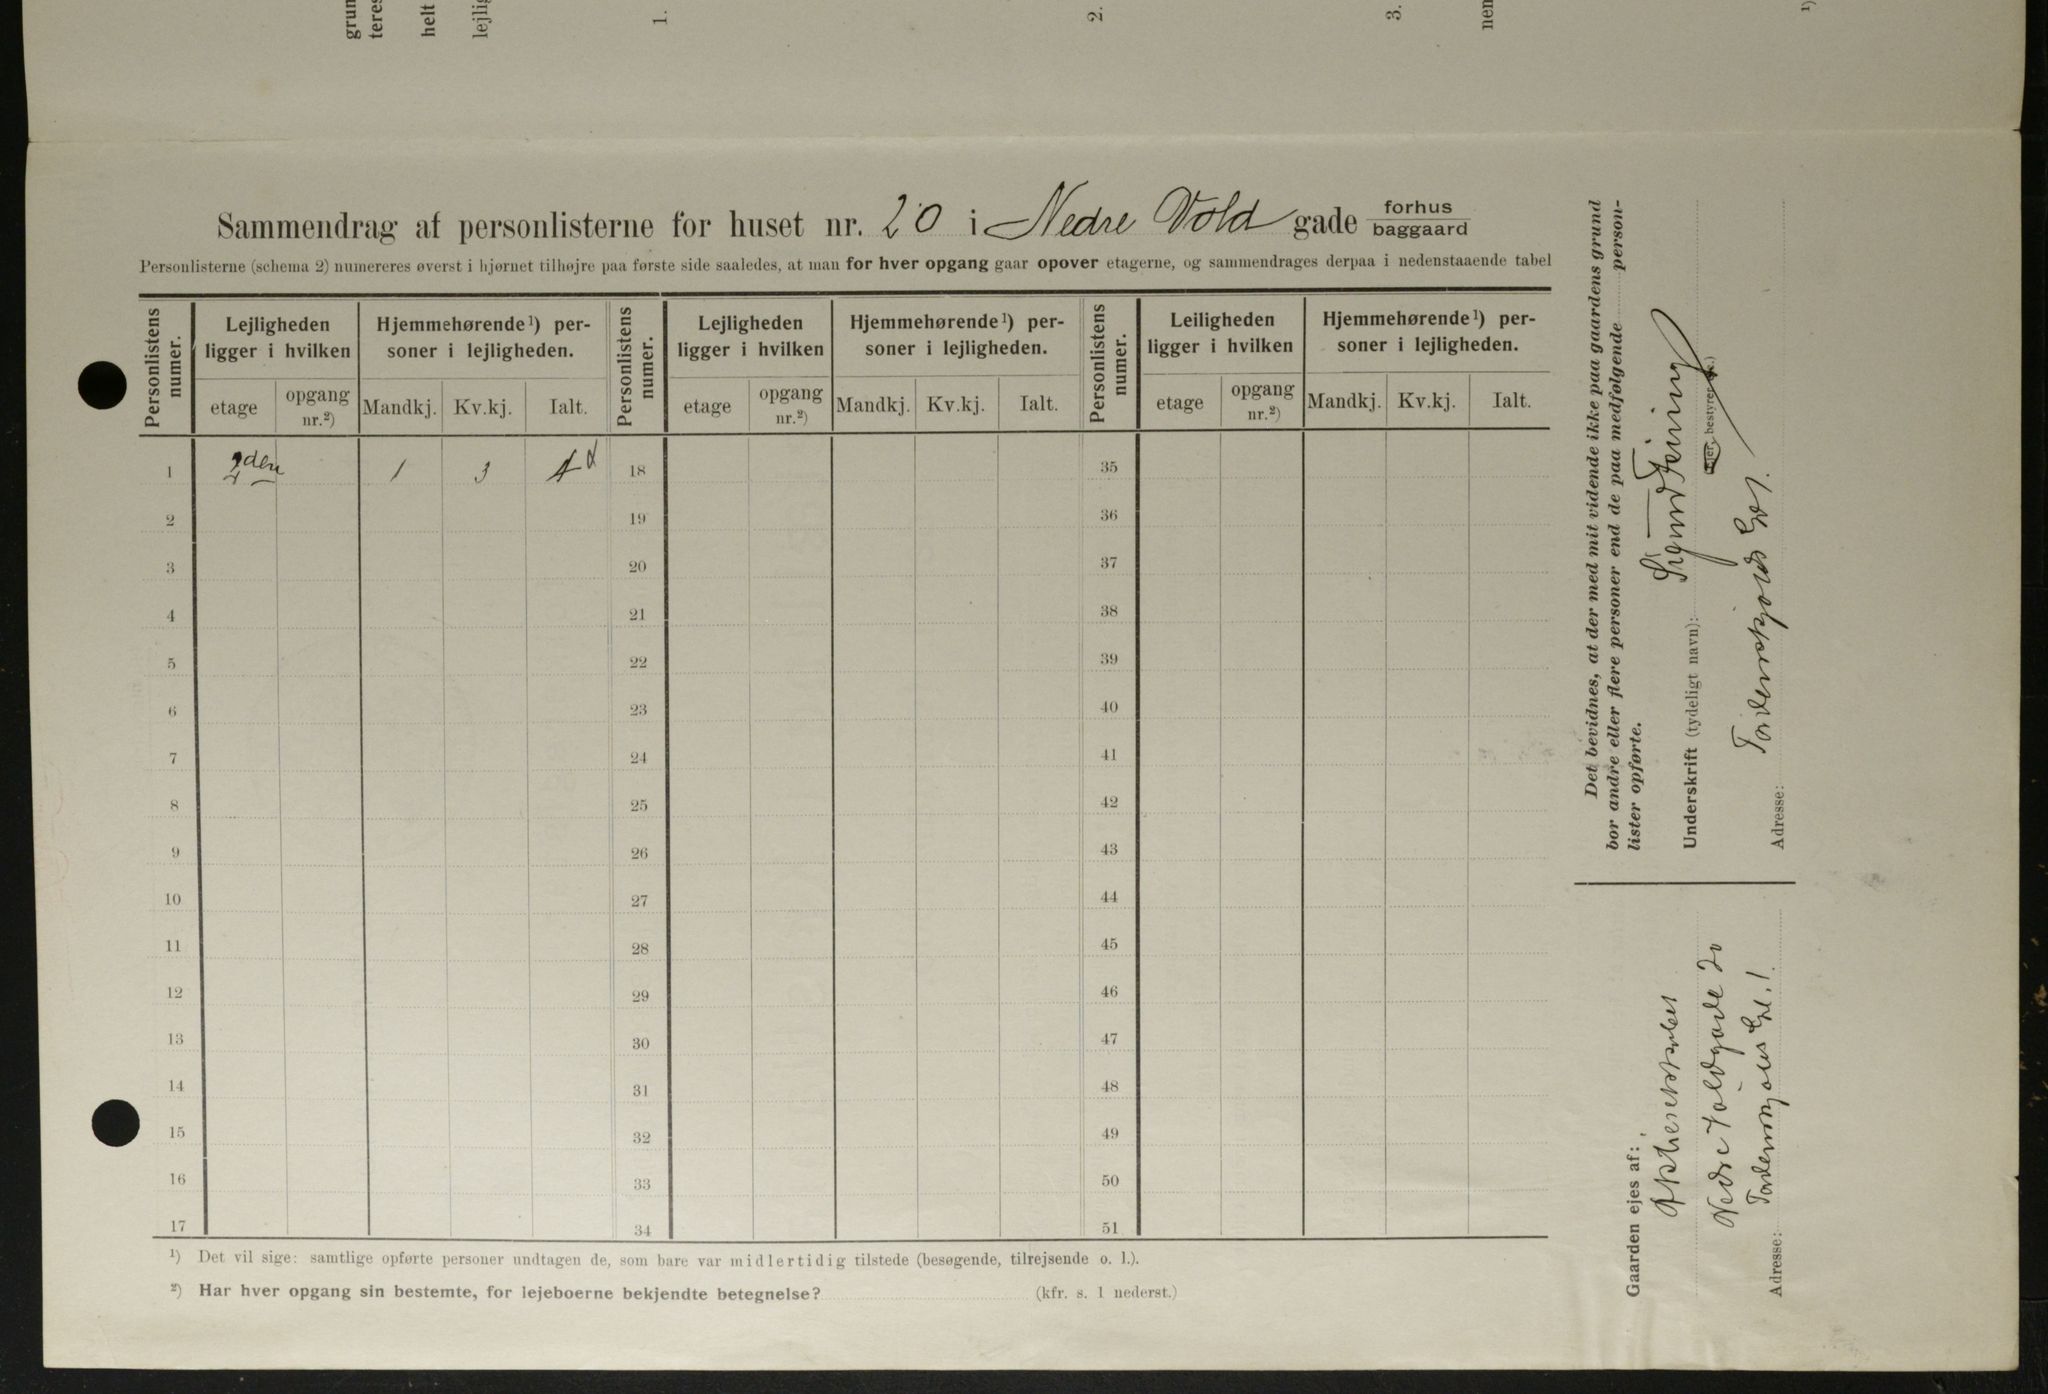 grun
teres
helt
lejlig
1.
2.
3.
nem
1)
Sammendrag af personlisterne for huset nr. 20 i Nedre Vold gade forhus
baggaard
Personlisterne (schema 2) numereres øverst i hjørnet tilhøjre paa første side saaledes, at man for hver opgang gaar opover etagerne, og sammendrages derpaa i nedenstaaende tabel
Personlistens numer. Lejligheden ligger i hvilken Hjemmehørende¹) personer i lejligheden. Personlistens numer. Lejligheden ligger i hvilken Hjemmehørende¹) personer i lejligheden. Personlistens numer. Leiligheden ligger i hvilken Hjemmehørende¹) personer i lejligheden.
etage opgang nr.²) Mandkj. Kv.kj. Ialt. etage opgang nr.²) Mandkj. Kv.kj. Ialt. etage opgang nr.²) Mandkj. Kv.kj. Ialt.
1 2den 1 3 4 18 35
2 19 36
3 20 37
4 21 38
5 22 39
6 23 40
7 24 41
8 25 42
9 26 43
10 27 44
11 28 45
12 29 46
13 30 47
14 31 48
15 32 49
16 33 50
17 34 51
¹) Det vil sige: samtlige opførte personer undtagen de, som bare var midlertidig tilstede (besøgende, tilrejsende o. l.).
²) Har hver opgang sin bestemte, for lejeboerne bekjendte betegnelse? (kfr. s. 1 nederst.)
Det bevidnes, at der med mit vidende ikke paa gaardens grund
bor andre eller flere personer end de paa medfølgende person-
lister opførte.
Underskrift (tydeligt navn):
(ejer, bestyrer
Adresse: Tordenskjolds Gd 1.
Gaarden ejes af:
Nedre Voldgade 20
Adresse: Tordenskjolds Gd. 1.